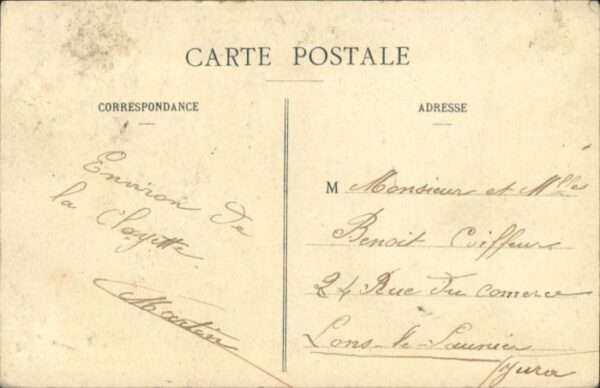 CARTE POSTALE
CORRESPONDANCE
ADRESSE
Environ de
la Clayette
Martin
M Monsieur et Mlles
Benoit Coiffeur
24 Rue du Comerce
Lons-le-Saunier
Jura